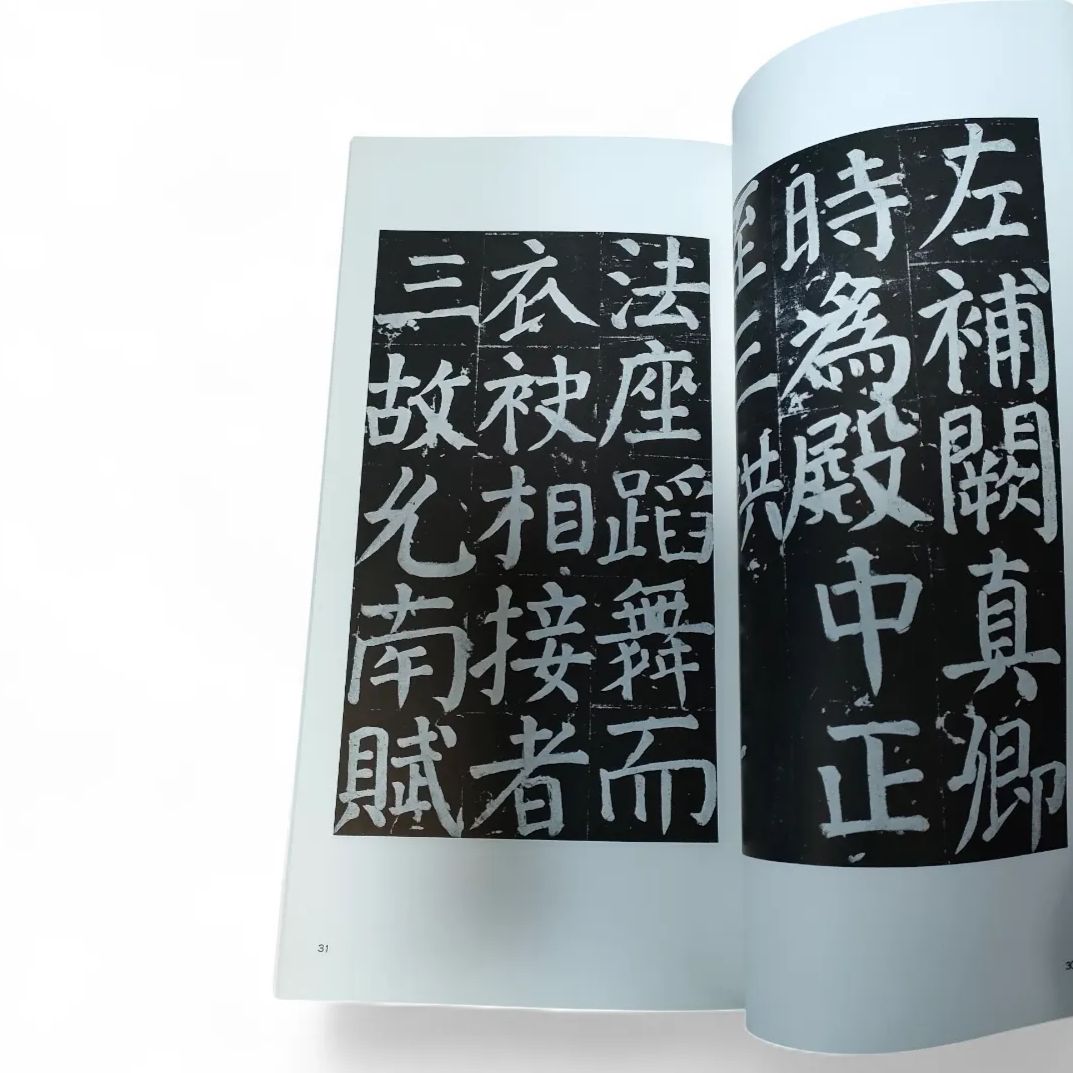 左補闕真卿
時為殿中正
法座蹈舞而
衣袂相接者
三故允南賦
31